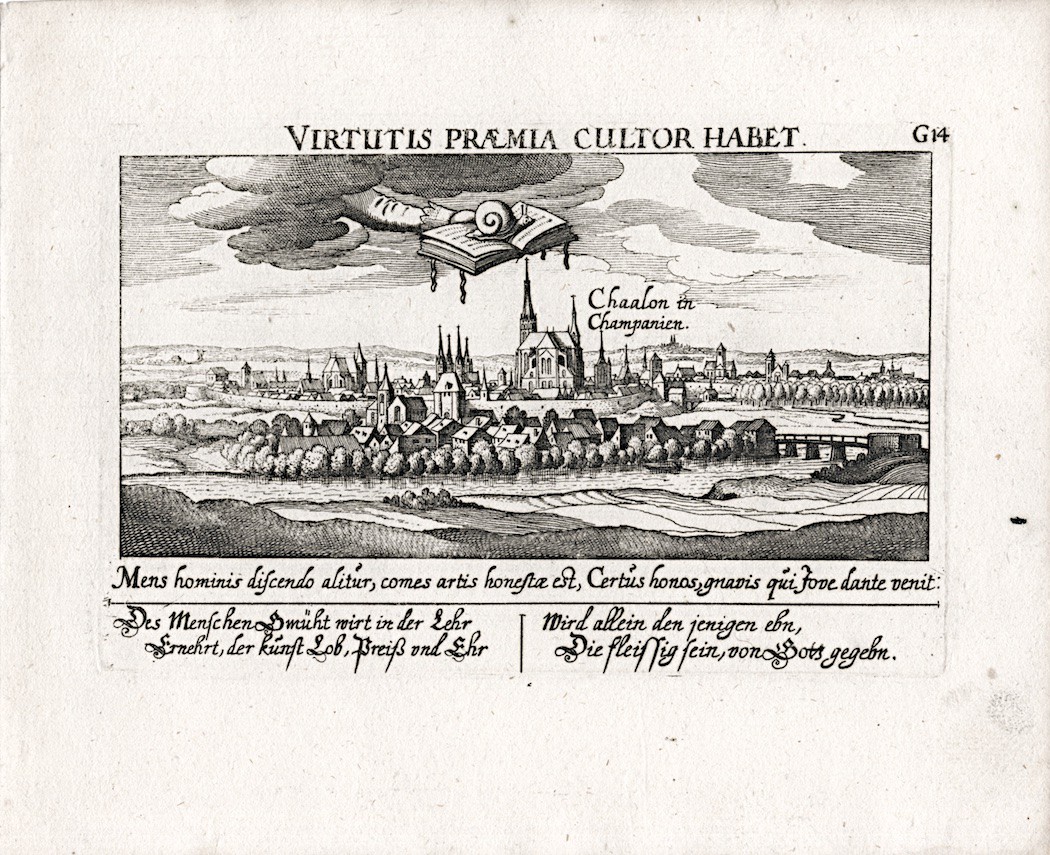 VIRTUTIS PRÆMIA CULTOR HABET. G14
Chaalon in
Champanien.
Mens hominis diſcendo alitur, comes artis honeſtæ eſt, Certus honos, gnavis qui Jove dante venit:
Des Menſchen Gmüht wirt in der Lehr
Ernehrt, der kunſt Lob, Preiß vnd Ehr
Wird allein den jenigen ebn,
Die fleiſſig ſein, von Gott gegebn.